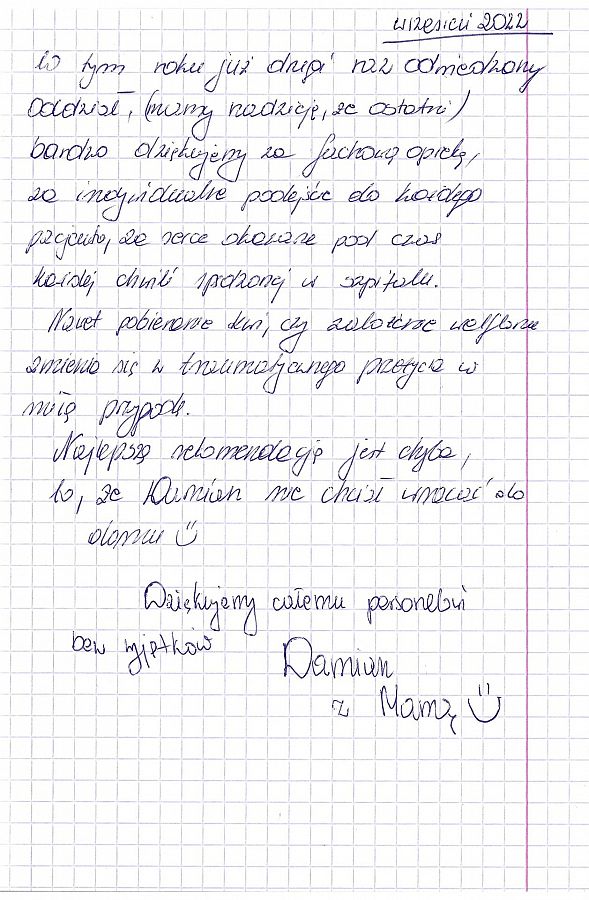 wrzesień 2022
W tym roku już drugi raz odwiedzamy
Oddział, (mamy nadzieję, że ostatni)
bardzo dziękujemy za fachową opiekę,
za indywidualne podejście do każdego
pacjenta, za serce okazane pod czas
każdej chwili spędzonej w szpitalu.
Nawet pobieranie krwi, czy założenie welflonu
zmienia się w traumatycznego przeżycia w
miłą przygodę.
Najlepszą rekomendacją jest chyba,
to, że Damian nie chciał wracać do
domu
Dziękujemy całemu personelowi
bez wyjątków
Damian
z Mamą